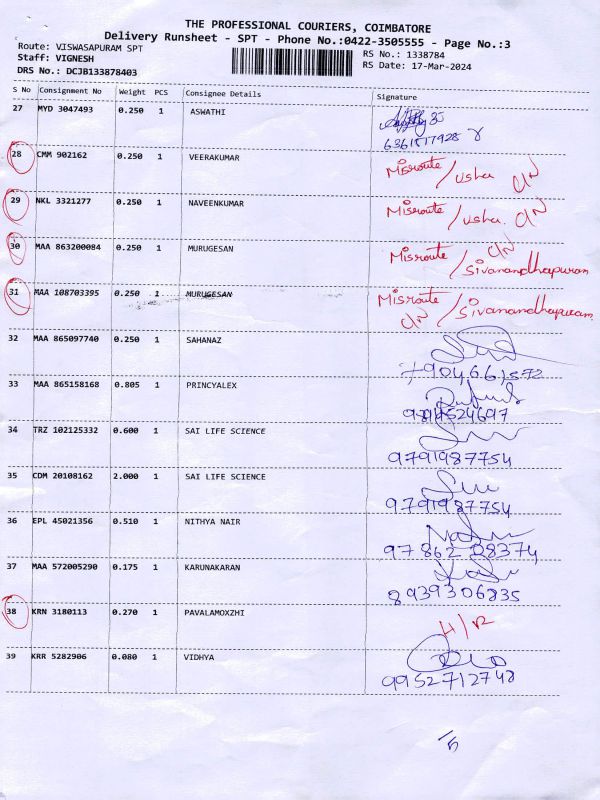 THE PROFESSIONAL COURIERS, COIMBATORE
Delivery Runsheet - SPT - Phone No.:0422-3505555 - Page No.:3
Route: VISWASAPURAM SPT
RS No.: 1338784
Staff: VIGNESH
RS Date: 17-Mar-2024
DRS No.: DCJB133878403
S No Consignment No Weight PCS Consignee Details Signature
27 MYD 3047493 0.250 1 ASWATHI
28 CMM 902162 0.250 1 VEERAKUMAR Misroute / usha C/N
29 NKL 3321277 0.250 1 NAVEENKUMAR Misroute / usha. C/N
30 MAA 863200084 0.250 1 MURUGESAN Misroute / Sivanandhapuram C/N
31 MAA 108703395 0.250 1 MURUGESAN Misroute / Sivanandhapuram. C/N
32 MAA 865097740 0.250 1 SAHANAZ 7904661572
33 MAA 865158168 0.805 1 PRINCYALEX
34 TRZ 102125332 0.600 1 SAI LIFE SCIENCE 9791987754
35 CDM 20108162 2.000 1 SAI LIFE SCIENCE 9791987754
36 EPL 45021356 0.510 1 NITHYA NAIR
37 MAA 572005290 0.175 1 KARUNAKARAN 8939306835
38 KRN 3180113 0.270 1 PAVALAMOXZHI H/R
39 KRR 5282906 0.080 1 VIDHYA 9952712748